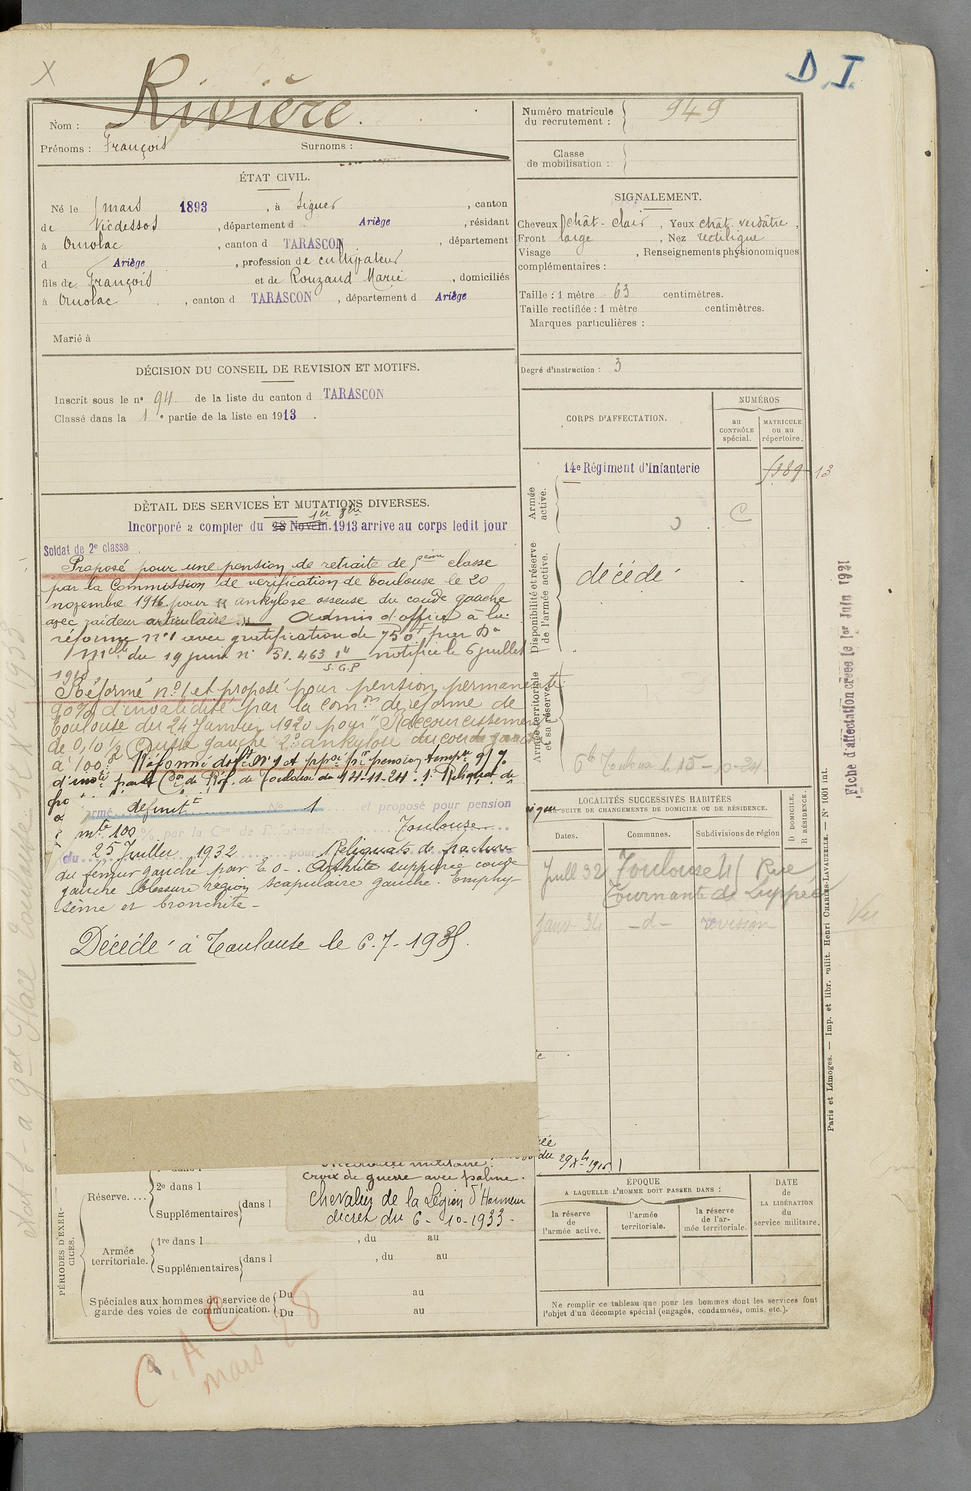 X
D. I.
Nom : Rivière.
Prénoms : François Surnoms :
ÉTAT CIVIL.
Né le 1 mars 1893, à Siguer, canton
de Vicdessos, département d Ariège, résidant
à Ornolac, canton d TARASCON, département
d Ariège, profession de cultivateur
fils de François et de Rouzaud Marie, domiciliés
à Ornolac, canton d TARASCON, département d Ariège
Marié à
DÉCISION DU CONSEIL DE REVISION ET MOTIFS.
Inscrit sous le n° 94 de la liste du canton d TARASCON
Classé dans la 1e partie de la liste en 1913.
DÉTAIL DES SERVICES ET MUTATIONS DIVERSES.
Incorporé à compter du 28 Novem. 1913 arrive au corps ledit jour
Soldat de 2e classe
Proposé pour une pension de retraite de classe
par la Commission de vérification de Toulouse le 20
novembre 1916 pour ankylose osseuse du coude gauche
avec raideur articulaire. Admis d'office à la
réforme n°1 avec gratification de 750f par Don
Mlle du 19 juin n° 51.463 notifiée le 6 juillet
S.G.P
Réformé n°1 et proposé pour pension permanente
90% d'invalidité par la Comon de réforme de
Toulouse du 24 Janvier 1920 pour 1° Raccourcissement
de 0,10 cuisse gauche 2° ankylose du coude gauche
à 100
Réformé defft n°1 et ppsé pr pension tempre
d'invté par la Con de Réf. de Toulouse du 14-11-24. 1° Reliquat de
armé définitt N° 1 et proposé pour pension
mte 100 % par la Con de Réforme de Toulouse
du 25 Juillet 1932 pour Reliquats de fracture
du fémur gauche par E O. Arthrite suppurée coude
gauche blessure région scapulaire gauche. Emphy-
sème et bronchite -
Décédé à Toulouse le 6-7-1935.
Croix de guerre avec palme.
Chevalier de la Légion d'Honneur
décret du 6-10-1933-
PÉRIODES D'EXERCICES.
Réserve....
2e dans l
Supplémentaires dans l
Armée territoriale.
1re dans l , du au
Supplémentaires dans l , du au
Spéciales aux hommes du service de
garde des voies de communication.
Du au
Du au
Numéro matricule du recrutement : 949
Classe de mobilisation :
SIGNALEMENT.
Cheveux chât-clair, Yeux chât. verdâtre,
Front large, Nez rectiligne
Visage , Renseignements physionomiques
complémentaires :
Taille : 1 mètre 63 centimètres.
Taille rectifiée : 1 mètre centimètres.
Marques particulières :
Degré d'instruction : 3
CORPS D'AFFECTATION.
NUMÉROS
au CONTRÔLE spécial.
MATRICULE ou au répertoire.
Armée active.
14e Régiment d'Infanterie
13
C
Disponibilité et réserve de l'armée active.
décédé
Armée territoriale et sa réserve.
Toulouse le 15-10-24
LOCALITÉS SUCCESSIVES HABITÉES
PAR SUITE DE CHANGEMENTS DE DOMICILE OU DE RÉSIDENCE.
Dates. Communes. Subdivisions de région
D DOMICILE.
R RÉSIDENCE.
Juil 32 Toulouse 41 Rue
Tournante de Luppé
Janv-34 -d- révision
du 29 Xbre 1916
ÉPOQUE
A LAQUELLE L'HOMME DOIT PASSER DANS :
la réserve de l'armée active.
l'armée territoriale.
la réserve de l'armée territoriale.
DATE de LA LIBÉRATION du service militaire.
Ne remplir ce tableau que pour les hommes dont les services font
l'objet d'un décompte spécial (engagés, condamnés, omis, etc.).
Fiche d'affectation créée le 1er Juin 1921
Vu
Paris et Limoges. — Imp. et libr. milit. Henri CHARLES-LAVAUZELLE. — N° 1001 int.
C. A. C
mars 8